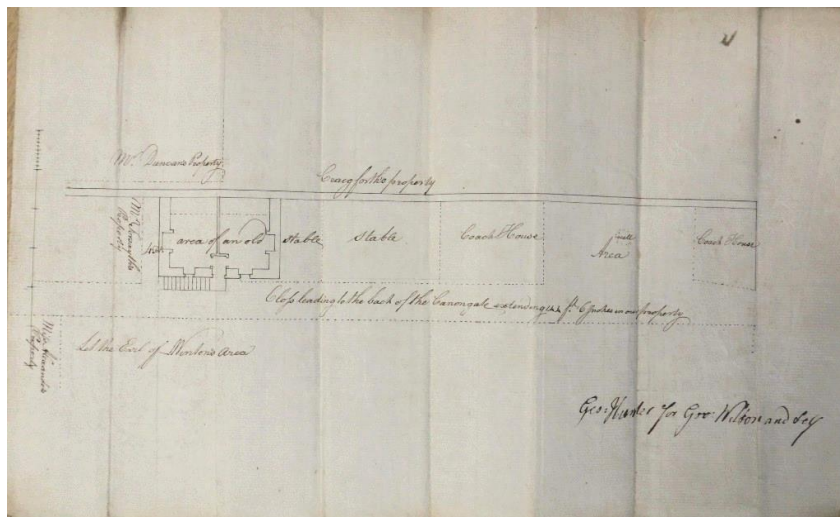 Mr. Duncan's Property
Craigforths property
Property
area of an old stable
stable
Coach House
Small
Area
Coach House
Closs leading to the back of the Canongate extending ft. 6 Inches in our property
Property
the Earl of Morton's Area
Geo: Hunter for Geo: Wilson and Self